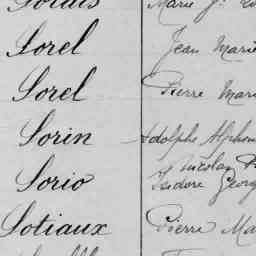 Marie J.
Sorel Jean Marie
Sorel Pierre Mari
Sorin Adolphe Alphon
Nicolas
Sorio Isidore Georg
Sotiaux Pierre Ma